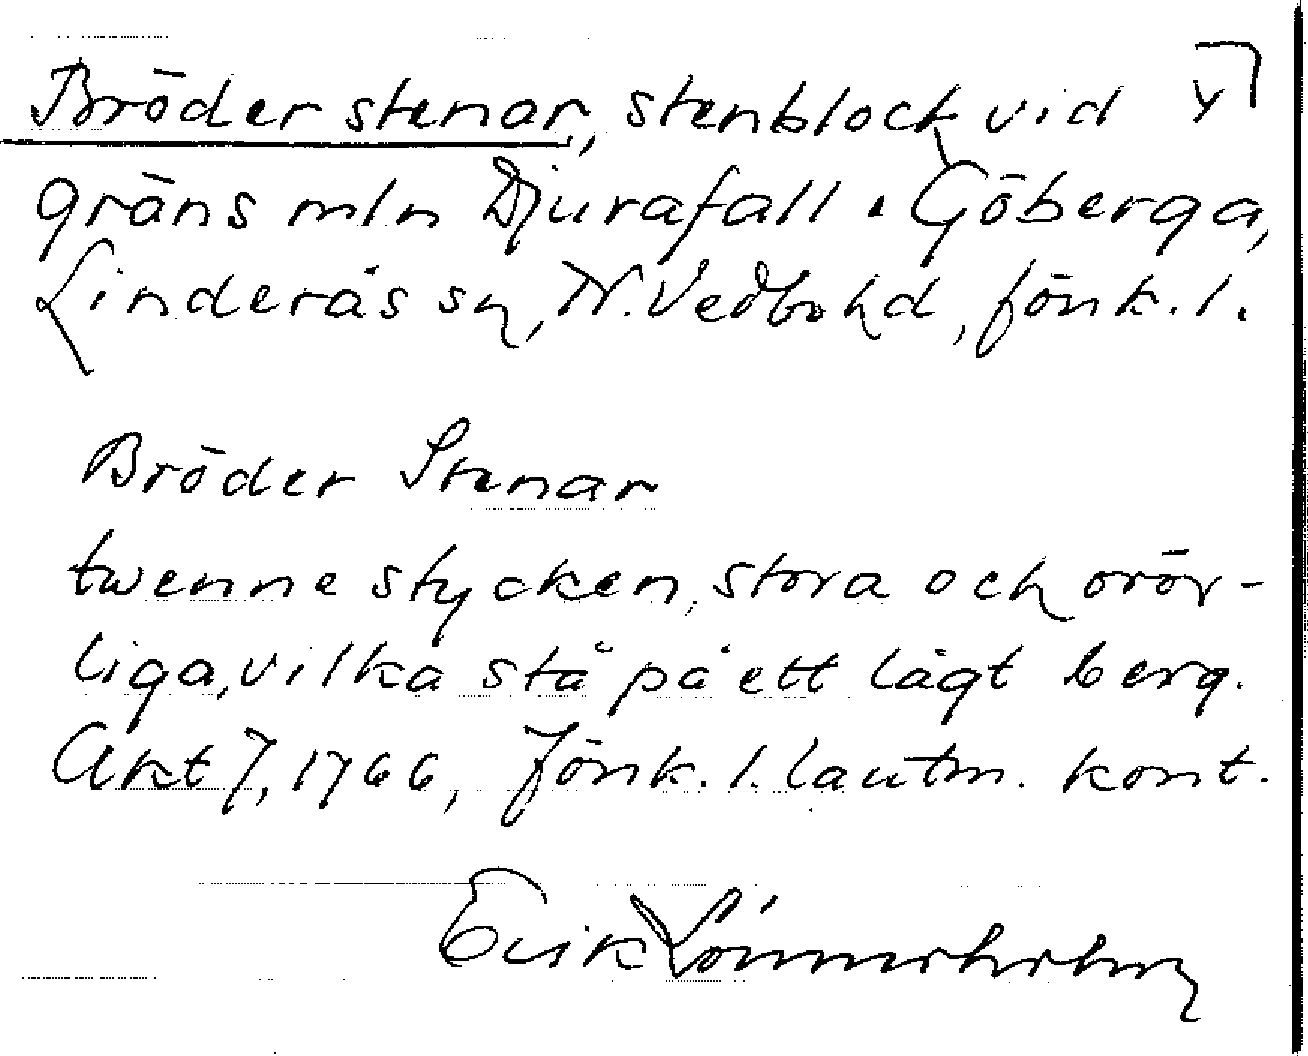 Bröder stenar, stenblock vid Y
gräns mln Djurafall o Göberga,
Linderås sn, N. Vedbo hd, Jönk. l.
Bröder Stenar
twenne stycken, stora och orör-
liga, vilka stå på ett lågt berg.
Akt 7, 1766, Jönk. l. lantm. kont.
Erik Lönnerholm